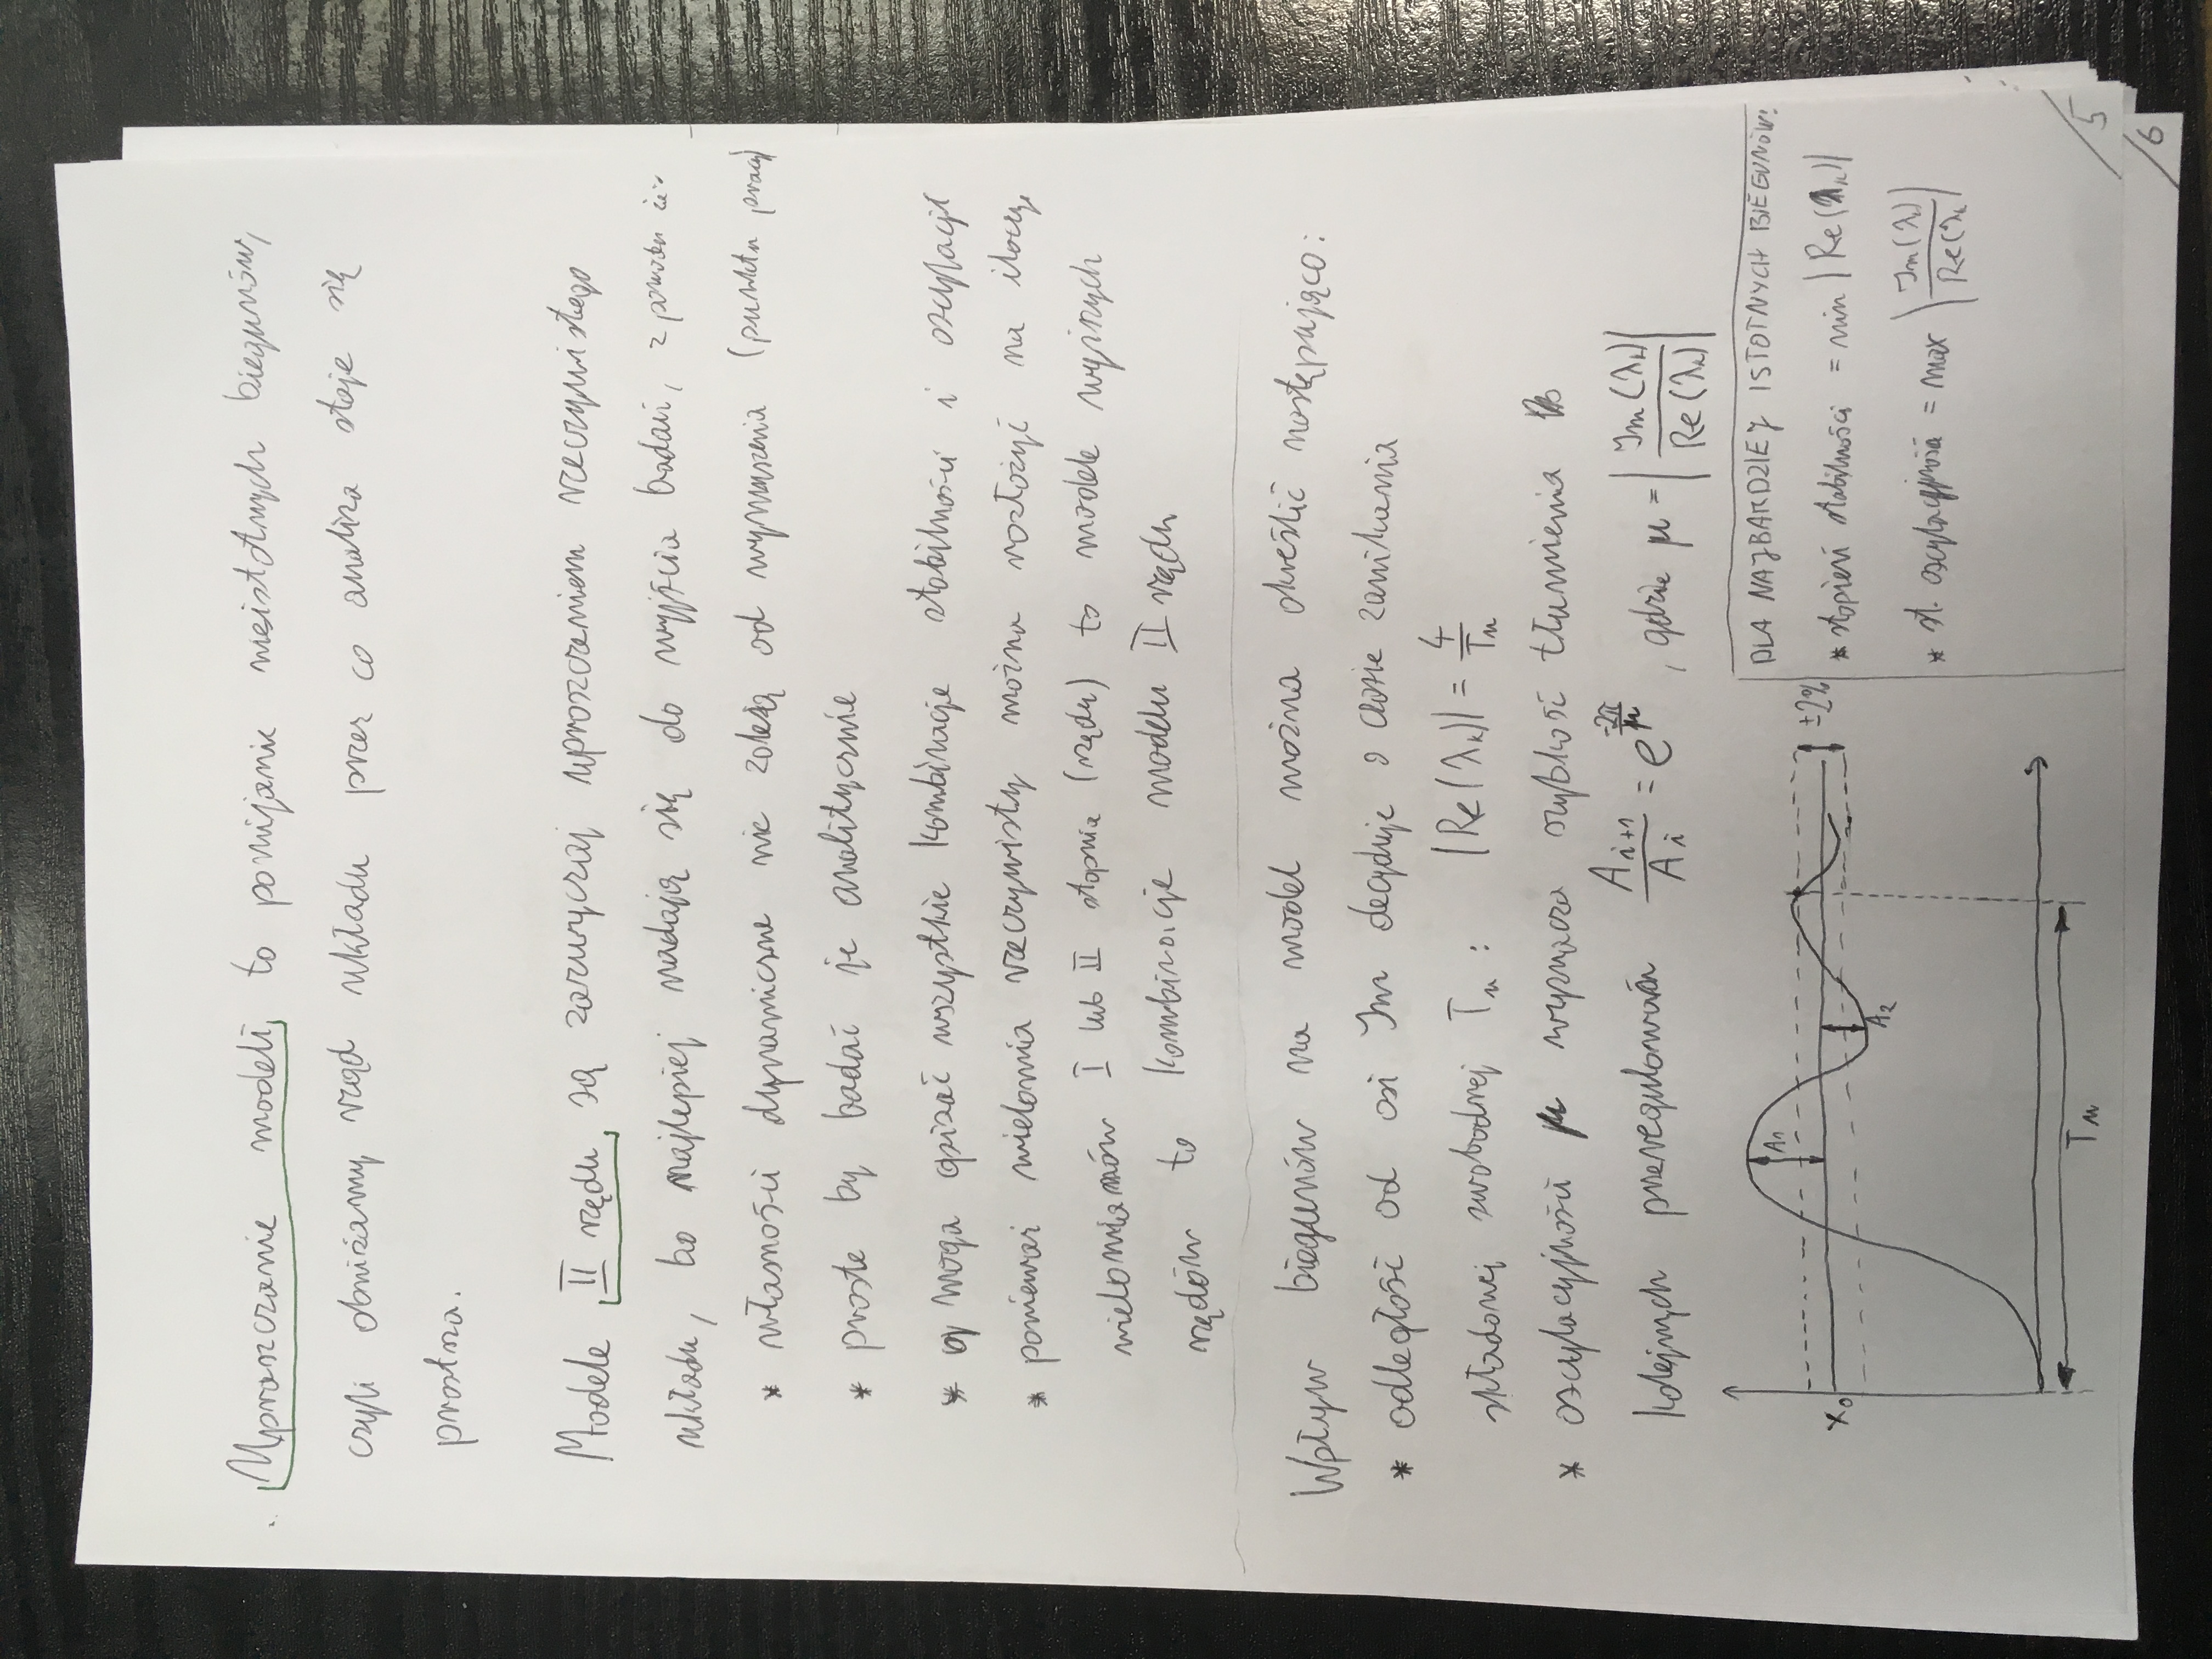 Upraszczanie modeli to pomijanie nieistotnych biegunów,
czyli obniżamy rząd układu przez co analiza staje się
prostsza.
Modele II rzędu są zazwyczaj uproszczeniem rzeczywistego
układu, bo najlepiej nadają się do wyjścia badań, z powodu że:
* własności dynamiczne nie zależą od wymuszenia (punktu pracy)
* proste by badać je analitycznie
* moga opisać wszystkie kombinacje stabilności i oscylacji
* ponieważ wielomia rzeczywisty można rozłożyć na iloczy.
wielomianów I lub II stopnia (rzędu) to modele wyższych
rzędów to kombinacje modelu II rzędu
Wpływ biegunów na model można określić następująco:
* odległość od osi Im decyduje o czasie zanikania
składowej swobodnej Tₙ: |Re(λₖ)| = 4/Tₙ
* oscylacyjności μ wyznacza szybkość tłumienia
kolejnych przeregulowań Aᵢ₊₁/Aᵢ = e^(-2π/μ), gdzie μ = |Im(λₖ)/Re(λₖ)|
A₁
±2%
x₀
A₂
Tₙ
DLA NAJBARDZIEJ ISTOTNYCH BIEGUNÓW:
* stopień stabilności = min |Re(λₖ)|
* st. oscylacyjności = max |Im(λₖ)/Re(λₖ|
/5
/6